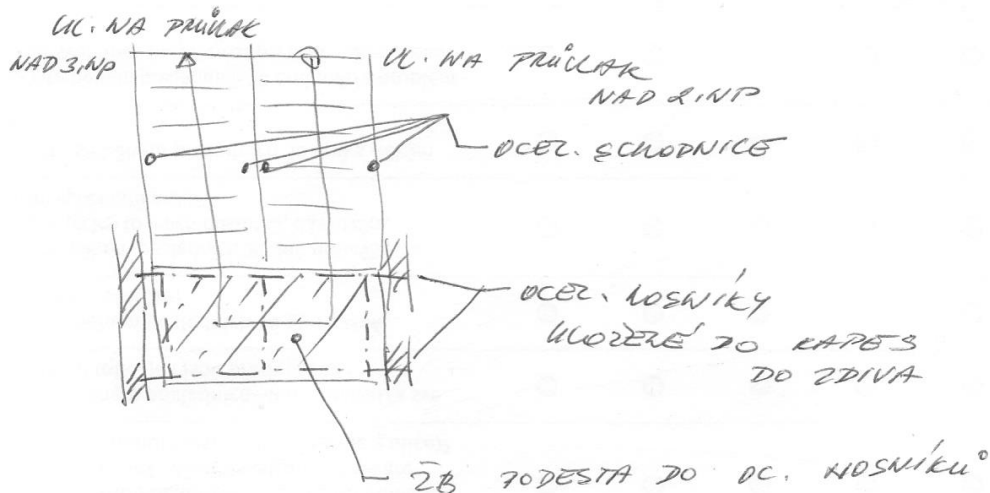 UL. NA PRŮVLAK
NAD 3.NP
UL. NA PRŮVLAK
NAD 2.NP
OCEL. SCHODNICE
OCEL. NOSNÍKY
ULOŽENÉ DO KAPES
DO ZDIVA
ŽB PODESTA DO OC. NOSNÍKŮ